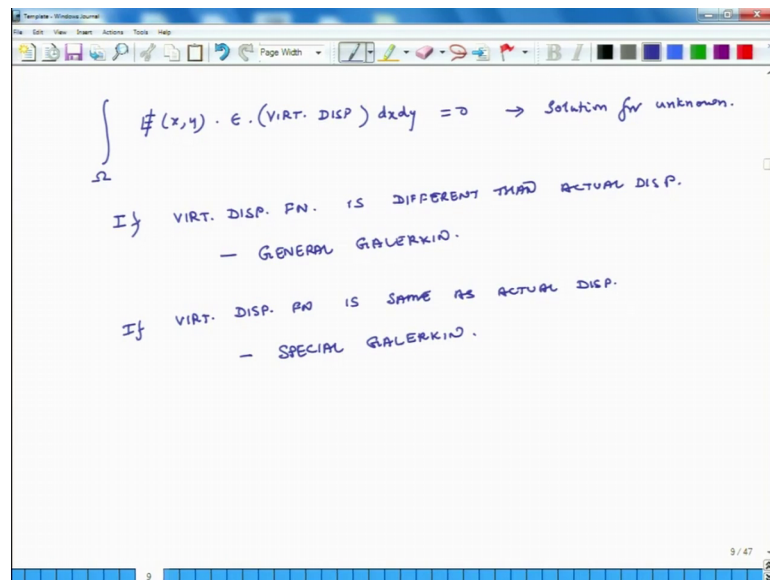 Template - Windows Journal
File Edit View Insert Actions Tools Help
Page Width
∫ (x,y) · ∈ · (VIRT. DISP) dxdy = 0 → Solution for unknown.
Ω
If VIRT. DISP. FN. IS DIFFERENT THAN ACTUAL DISP.
— GENERAL GALERKIN.
If VIRT. DISP. FN IS SAME AS ACTUAL DISP.
— SPECIAL GALERKIN.
9 / 47
9